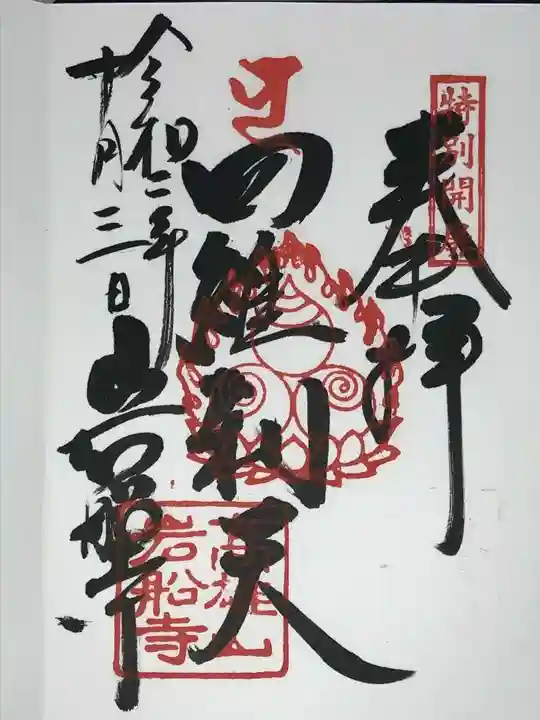 特別開扉
奉拝
四維利天
高雄山
岩船寺
令和二年
十月三日
岩船寺